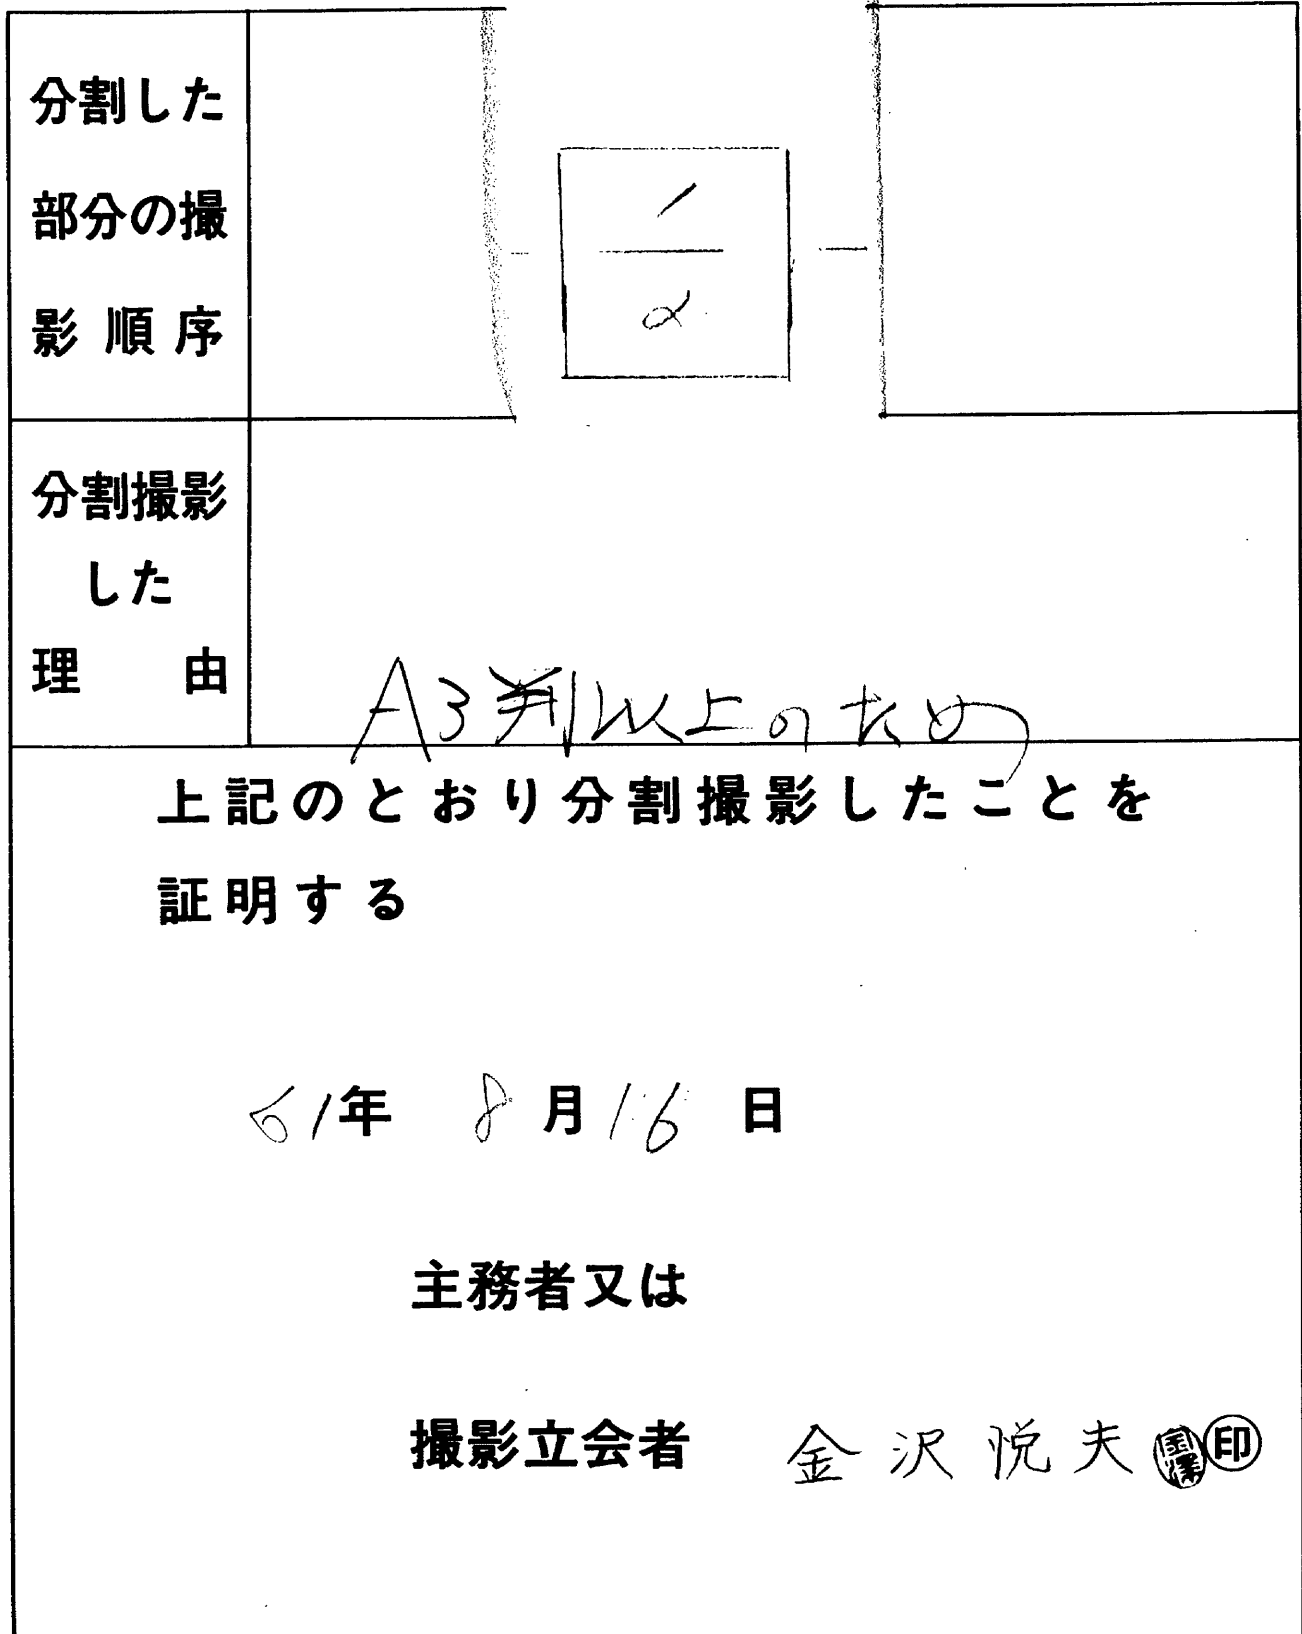 分割した
部分の撮
影順序
1
2
分割撮影
した
理由
A3判以上のため
上記のとおり分割撮影したことを
証明する
61年 8月16日
主務者又は
撮影立会者 金沢悦夫 金澤 印